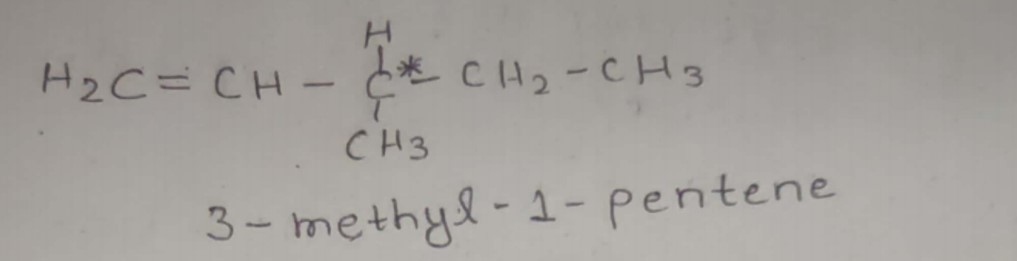 H
H2C = CH - C* - CH2 - CH3
CH3
3 - methyl - 1 - pentene